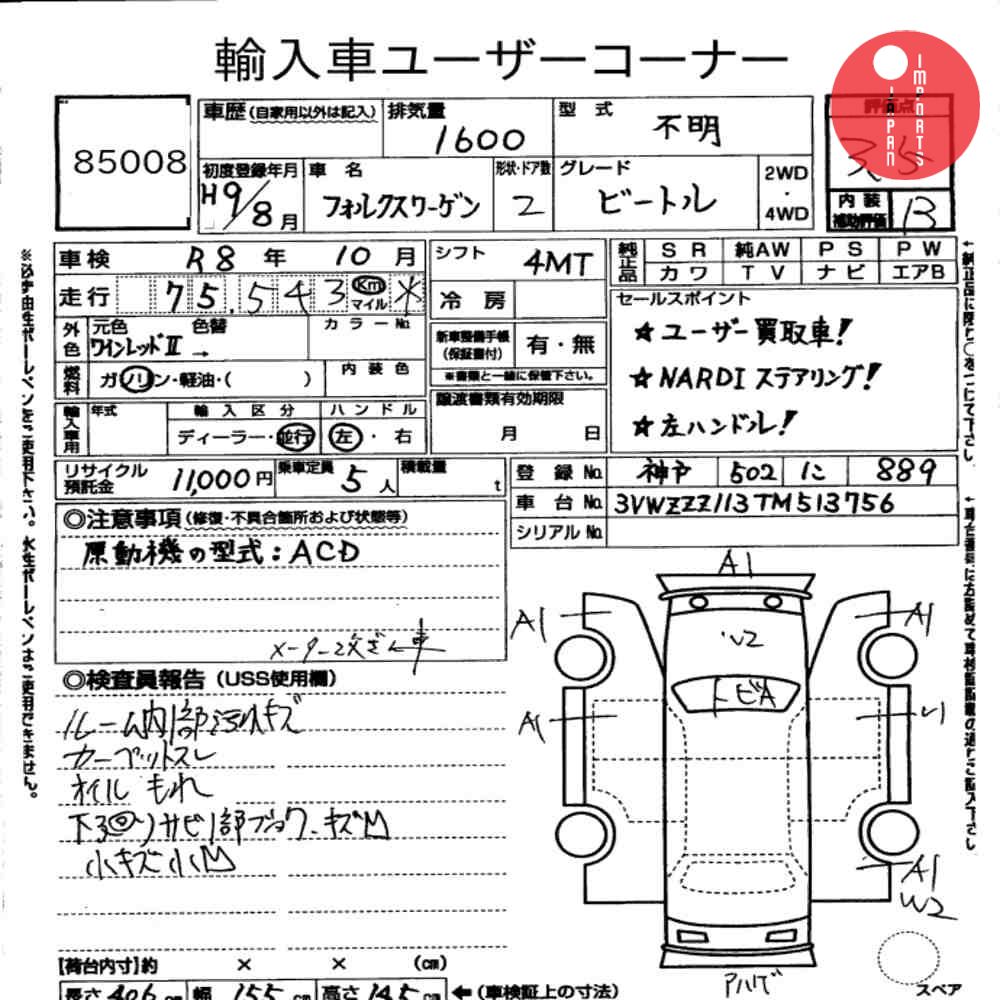 輸入車ユーザーコーナー
JAPAN IMPORTS
85008
車歴(自家用以外は記入) 排気量 1600 型式 不明 評価点
初度登録年月 H9/8月 車名 フォルクスワーゲン 形状・ドア数 2 グレード ビートル 2WD・4WD 内装補助評価 B
車検 R8年 10月 シフト 4MT 純正品 SR 純AW PS PW
カワ TV ナビ エアB
走行 75,543 km マイル * 冷房
セールスポイント
★ユーザー買取車!
★NARDIステアリング!
★左ハンドル!
外色 元色 ワインレッドII 色替 → カラーNo. 新車整備手帳(保証書付) 有・無
※書類と一緒に保管下さい。
燃料 ガソリン・軽油・( ) 内装色 譲渡書類有効期限 月 日
輸入車用 年式 輸入区分 ディーラー・並行 ハンドル 左・右
リサイクル預託金 11,000円 乗車定員 5人 積載量 t
登録No. 神戸 502 に 889
車台No. 3VWZZZ113TM513756
シリアルNo.
◎注意事項(修復・不具合箇所および状態等)
原動機の型式:ACD
メーター改ざん車
◎検査員報告(USS使用欄)
ルーム内部汚れキズ
カーペットスレ
オイルもれ
下回りサビ部ブヨウ・キズM
小キズ小M
A1
A1 W2 A1
トビA
A1 U1
A1
W2
アハゲ
スペア
【荷台内寸】約 × × (cm)
長さ 406 cm 幅 155 cm 高さ 145 cm ←(車検証上の寸法)
※必ず油性ボールペンをご使用下さい。水性ボールペンはご使用できません。
↓純正品に限り○をつけて下さい
↓車台番号には左詰めで車検証記載の通りご記入下さい